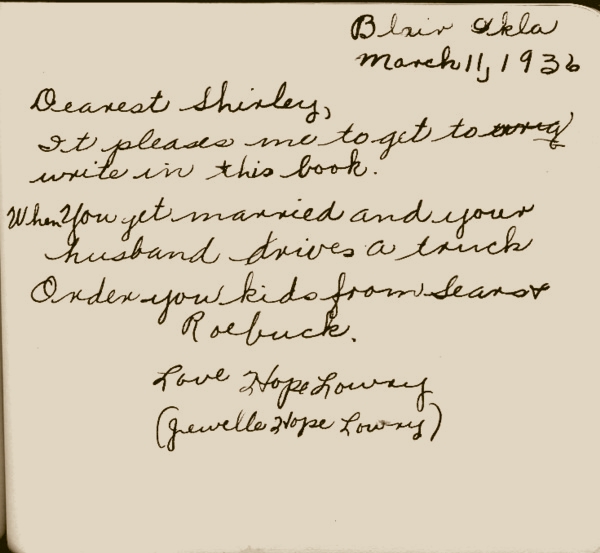 Blair Okla
March 11, 1936
Dearest Shirley,
It pleases me to get to
write in this book.
When You get married and your
husband drives a truck
Order you kids from Sears &
Roebuck.
Love Hope Lowry
(Jewelle Hope Lowry)